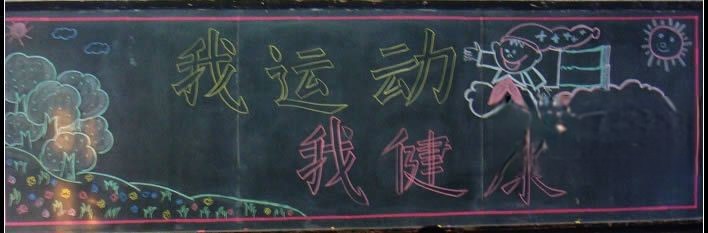 我运动
我健